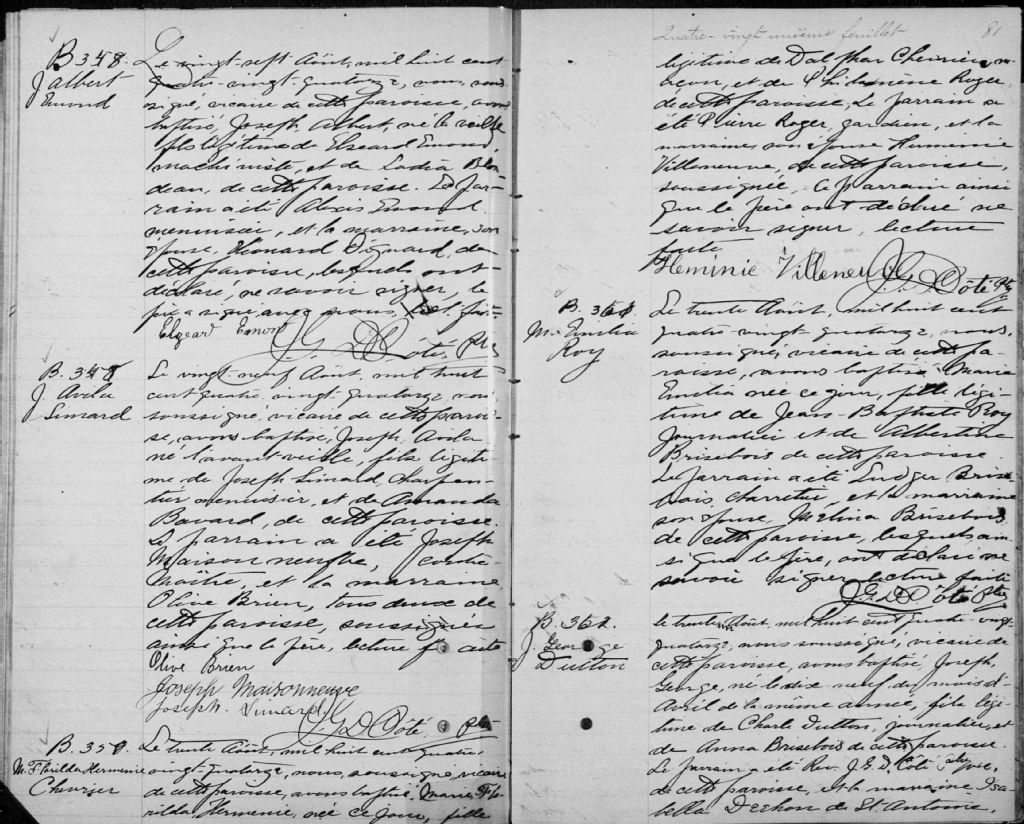 B. 348
J albert
Emond
Le vingt-sept Août, mil huit cent
quatre-vingt-quatorze, nous, sous
signé, vicaire de cette paroisse, avons
baptisé, Joseph Albert, né la veille
fils légitime de Elzéard Emond
machiniste, et de Lodia Blon
deau, de cette paroisse. Le par-
rain a été Alexis Emond
menuisier, et la marraine, son
épouse, Pignard, de
cette paroisse, lesquels ont
déclaré, ne savoir signer, le
père a signé avec nous.
Elzear Emond
J. G. D. Côté. Ptre
B. 349
J. Avila
Simard
Le vingt neuf Août, mil huit
cent quatre-vingt-quatorze, nous
soussigné, vicaire de cette parois-
se, avons baptisé, Joseph, Avila
né l'avant veille, fils légiti-
me de Joseph Simard Charpen-
tier menuisier, et de Amanda
Bavard, de cette paroisse.
Le parrain a été Joseph
Maisonneufve, contre-
maître, et la marraine
Olive Brien, tous deux de
cette paroisse, soussignés
ainsi que le père, lecture faite
Olive Brien
Joseph Maisonneuve
Joseph. Simard.
J. G. D. Côté, Ptre
B. 350.
M. Florilda Hermenie
Chevrier
Le trente Août, mil huit cent quatre-
vingt-quatorze, nous, soussigné, vicaire
de cette paroisse, avons baptisé, Marie Flo-
rilda Hermenie, née ce jour, fille
Quatre-vingt-unième feuillet 81
légitime de Dalphar Chevrier, ma-
çon, et de Philomène Roger,
de cette paroisse, Le parrain a
été Pierre Roger, gardien, et la
marraine son épouse Herminie
Villeneuve, de cette paroisse,
soussignée, le parrain ainsi
que le père ont déclaré ne
savoir signer, lecture
faite
Heminie Villeneuve J. G. D. Côté Ptre
B. 361
M. Emélia
Roy
Le trente Août, mil huit cent
quatre-vingt-quatorze, nous,
soussigné, vicaire de cette pa-
roisse, avons baptisé, Marie
Emélia née ce jour, fille légi-
time de Jean-Baptiste Roy
Journalier et de Albertine
Brisebois de cette paroisse.
Le parrain a été Ludger Brise
bois charretier, et la marraine
son épouse, Mélina Brisebois
de cette paroisse, lesquels ain-
si que le père, ont déclaré ne
savoir signer lecture faite
J. G. D. Côté Ptre
B. 362.
J. George
Dutton
Le trente Août, mil huit cent quatre-vingt-
quatorze, nous soussigné, vicaire de
cette paroisse, avons baptisé, Joseph,
George, né le dix neuf du mois d'
Avril de la même année, fils légi-
time de Charles Dutton, journalier, et
de Anna Brisebois de cette paroisse.
Le parrain a été Rev. J. G. D. Côté
de cette paroisse, et la marraine Isa-
bella de St. Antoine,